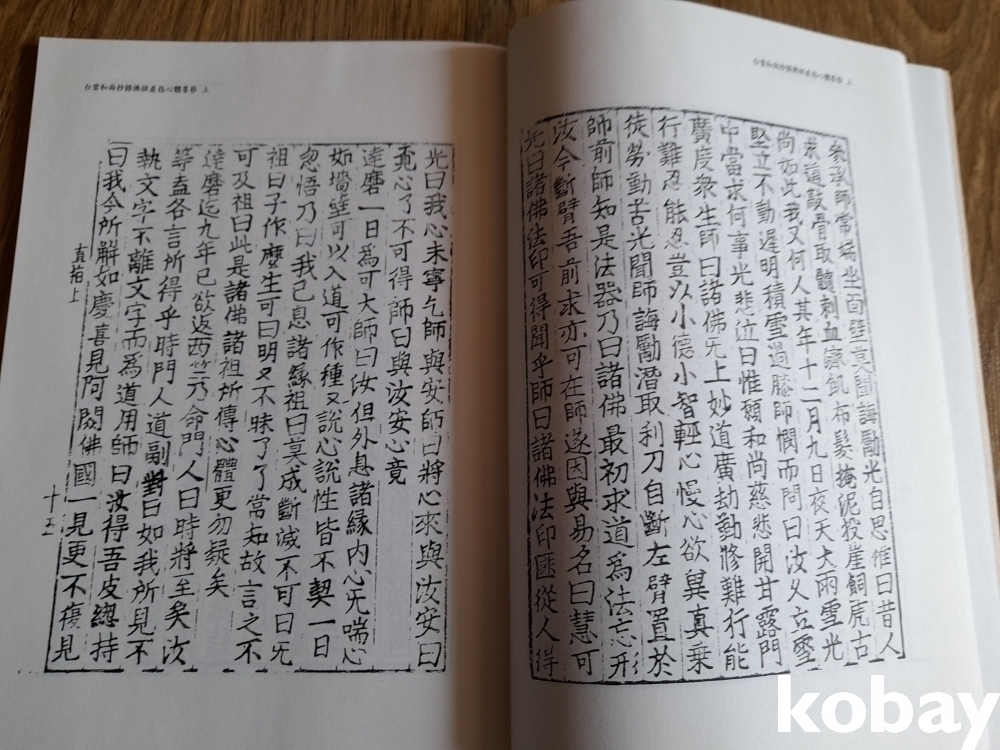 白雲和尚抄錄佛祖直指心體要節 上
參承師常端坐面壁莫聞誨勵光自思惟曰昔人
求道敲骨取髓刺血濟飢布髮掩泥投崖飼虎古
尚如此我又何人其年十二月九日夜天大雨雪光
堅立不動遲明積雪過膝師憫而問曰汝久立雪
中當求何事光悲泣曰惟願和尚慈悲開甘露門
廣度衆生師曰諸佛无上妙道廣劫勤修難行能
行難忍能忍豈以小德小智輕心慢心欲冀真乗
徒勞勤苦光聞師誨勵潛取利刀自斷左臂置於
師前師知是法器乃曰諸佛最初求道爲法忘形
汝今斷臂吾前求亦可在師遂因與易名曰慧可
光曰諸佛法印可得聞乎師曰諸佛法印匪從人得
白雲和尚抄錄佛祖直指心體要節 上
光曰我心未寧乞師與安師曰將心來與汝安曰
覓心了不可得師曰與汝安心竟
達磨一日爲可大師曰汝但外息諸緣內心无喘心
如墻壁可以入道可作種又說心說性皆不契一日
忽悟乃曰我已息諸緣祖曰莫成斷滅不可曰无
祖曰子作麽生可曰明又不昧了了常知故言之不
可及祖曰此是諸佛諸祖所傳心體更勿疑矣
達磨迄九年已欲返西竺乃命門人曰時將至矣汝
等盍各言所得乎時門人道副對曰如我所見不
執文字不離文字而爲道用師曰汝得吾皮總持
曰我今所解如慶喜見阿閦佛國一見更不復見
直指上 十五
kobay